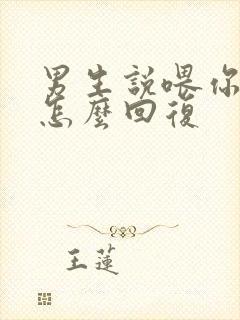 男生說喂你
怎麼回復
王蓮